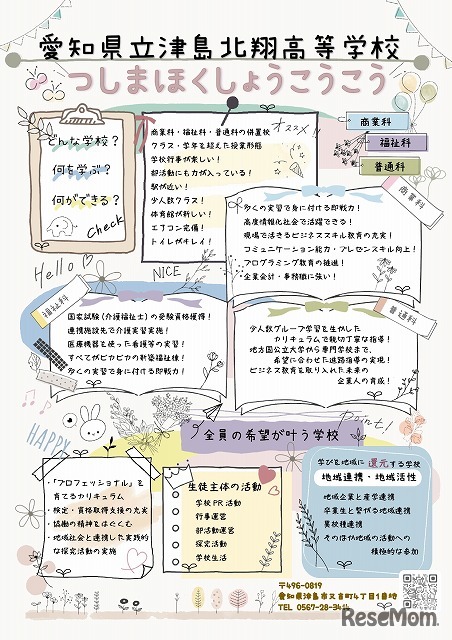 愛知県立津島北翔高等学校
つしまほくしょうこうこう
どんな学校?
何を学ぶ?
何ができる?
Check
商業科・福祉科・普通科の併置校
クラス・学年を超えた授業形態
学校行事が楽しい!
部活動にも力が入っている!
駅が近い!
少人数クラス!
体育館が新しい!
エアコン完備!
トイレがキレイ!
オススメ!!
商業科
福祉科
普通科
Hello
NICE
商業科
多くの実習で身に付ける即戦力!
高度情報化社会で活躍できる!
現場で活きるビジネススキル教育の充実!
コミュニケーション能力・プレゼンスキル向上!
プログラミング教育の推進!
企業会計・事務職に強い!
福祉科
国家試験(介護福祉士)の受験資格獲得!
連携施設先で介護実習実施!
医療機器を使った看護等の実習!
すべてがピカピカの新築福祉棟!
多くの実習で身に付ける即戦力!
普通科
少人数グループ学習を生かした
カリキュラムで親切丁寧な指導!
地方国公立大学から専門学校まで、
希望に合わせた進路指導の実現!
ビジネス教育を取り入れた未来の
企業人の育成!
HAPPY
Point!
全員の希望が叶う学校
・「プロフェッショナル」を
育てるカリキュラム
・検定・資格取得支援の充実
・協働の精神をはぐくむ
・地域社会と連携した実践的
な探究活動の実施
生徒主体の活動
学校PR活動
行事運営
部活動運営
探究活動
学校生活
学びを地域に還元する学校
地域連携・地域活性
地域企業と産学連携
卒業生と繋がる地域連携
異校種連携
そのほか地域の活動への
積極的な参加
〒496-0819
愛知県津島市又吉町4丁目1番地
TEL 0567-28-34
ReseMom.